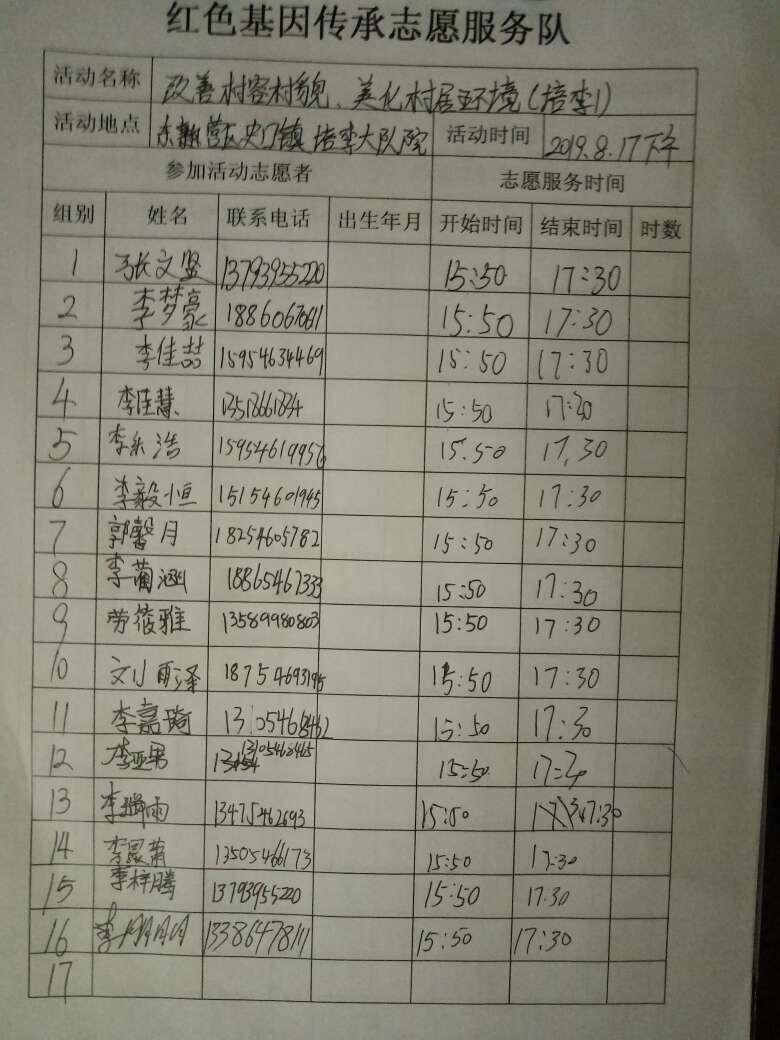 红色基因传承志愿服务队
活动名称 改善村容村貌、美化村居环境(培李1)
活动地点 东新营区史门镇 培李大队院 活动时间 2019.8.17下午
参加活动志愿者 志愿服务时间
组别 姓名 联系电话 出生年月 开始时间 结束时间 时数
1 张文竖 13793955220 15:50 17:30
2 李梦豪 18860670611 15:50 17:30
3 李佳喆 15954634469 15:50 17:30
4 李佳慧 13518661334 15:50 17:30
5 李乐浩 15954619956 15:50 17:30
6 李毅恒 15154601945 15:50 17:30
7 郭馨月 18254605782 15:50 17:30
8 李蔺涵 18865467333 15:50 17:30
9 劳筱雅 13589980803 15:50 17:30
10 刘雨泽 18754693195 15:50 17:30
11 李嘉琦 13105468462 15:50 17:30
12 李亚男 13105468465 15:50 17:30
13 李瑞雨 13475462693 15:50 17:30
14 李 13505466173 15:50 17:30
15 李梓腾 13793955220 15:50 17:30
16 李 13386478111 15:50 17:30
17